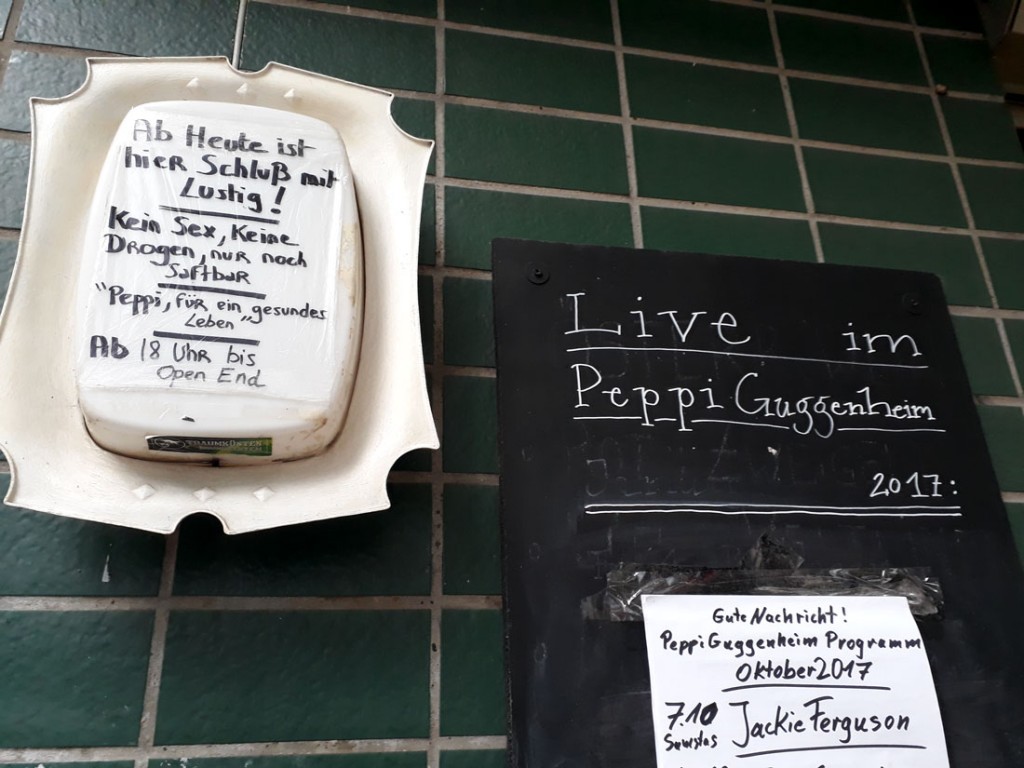 Ab Heute ist
hier Schluß mit
Lustig!
Kein Sex, Keine
Drogen, nur noch
Saftbar
"Peppi, für ein gesundes
Leben"
Ab 18 Uhr bis
Open End
Live im
Peppi Guggenheim
2017:
Gute Nachricht!
Peppi Guggenheim Programm
Oktober 2017
7.10 Jackie Ferguson